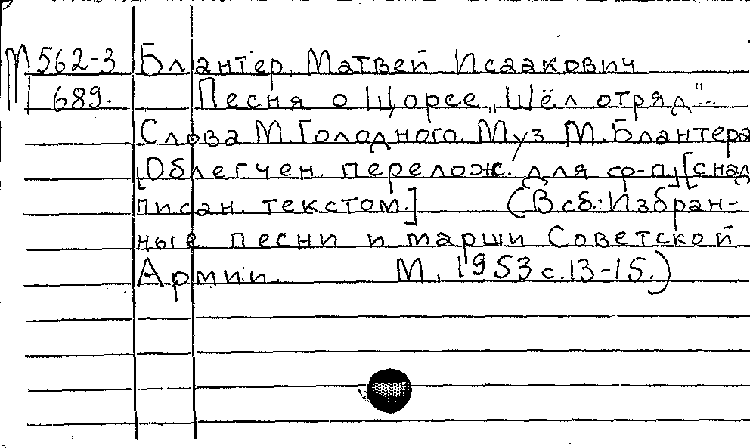 М562-3 Блантер, Матвей Исаакович
689. Песня о Щорсе „Шёл отряд"-
Слова М.Голодного. Муз М.Блантера
[Облегчен. перелож. для ф-п] [снад
писан. текстом.] (В сб.: Избран-
ные песни и марши Советской
Армии. М, 1953 с.13-15.)